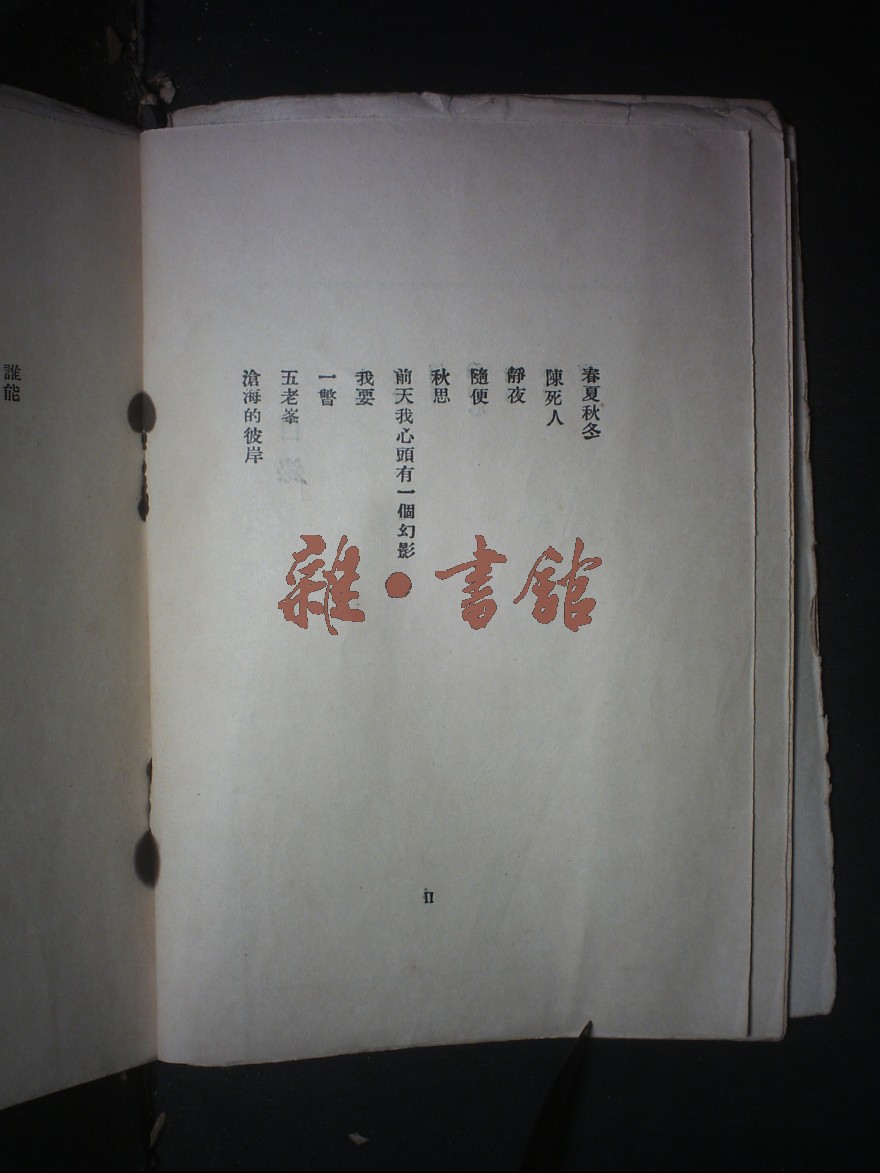 春夏秋冬
陳死人
靜夜
隨便
秋思
前天我心頭有一個幻影
我要
一瞥
五老峯
滄海的彼岸
II
誰能
雜・書館